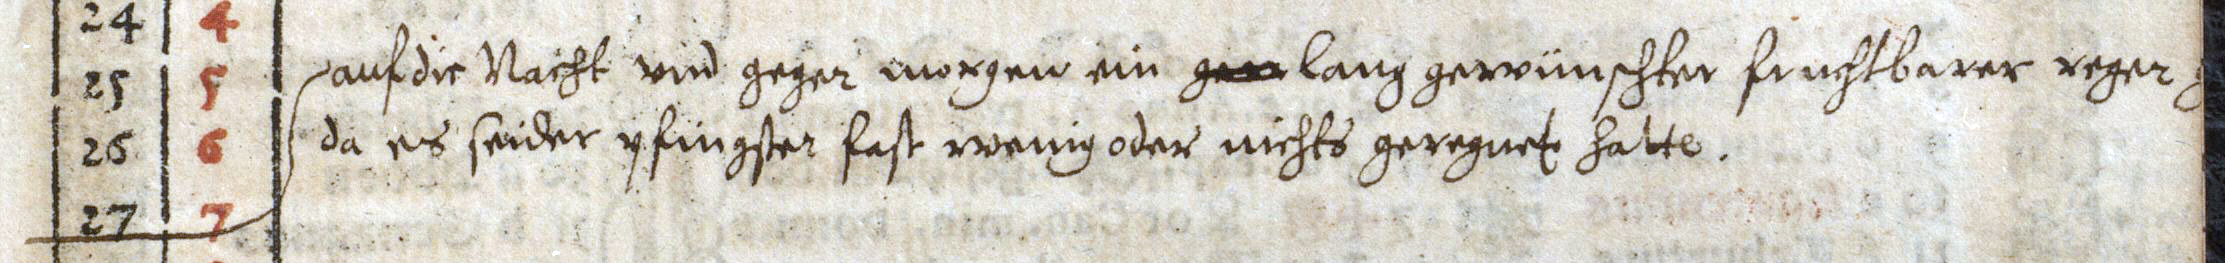 24 4
25 5 auf die Nacht vnd gegen morgen ein lang gewünschter fruchtbarer regen
26 6 da es seider pfingsten fast wenig oder nichts geregnet hatte.
27 7